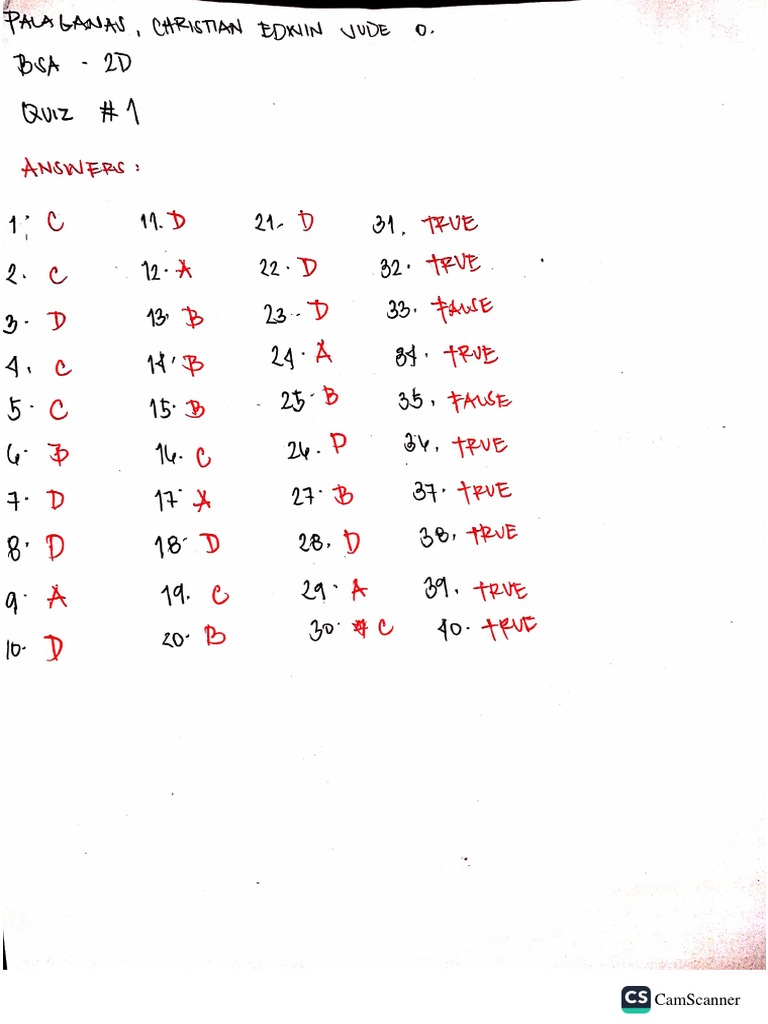 PALAGANAS, CHRISTIAN EDWIN JUDE O.
BSA - 2D
QUIZ #1
ANSWERS:
1. C 11. D 21. D 31. TRUE
2. C 12. A 22. D 32. TRUE
3. D 13. B 23. D 33. FALSE
4. C 14. B 24. A 34. TRUE
5. C 15. B 25. B 35. FALSE
6. B 16. C 26. D 36. TRUE
7. D 17. A 27. B 37. TRUE
8. D 18. D 28. D 38. TRUE
9. A 19. C 29. A 39. TRUE
10. D 20. B 30. C 40. TRUE
CS CamScanner